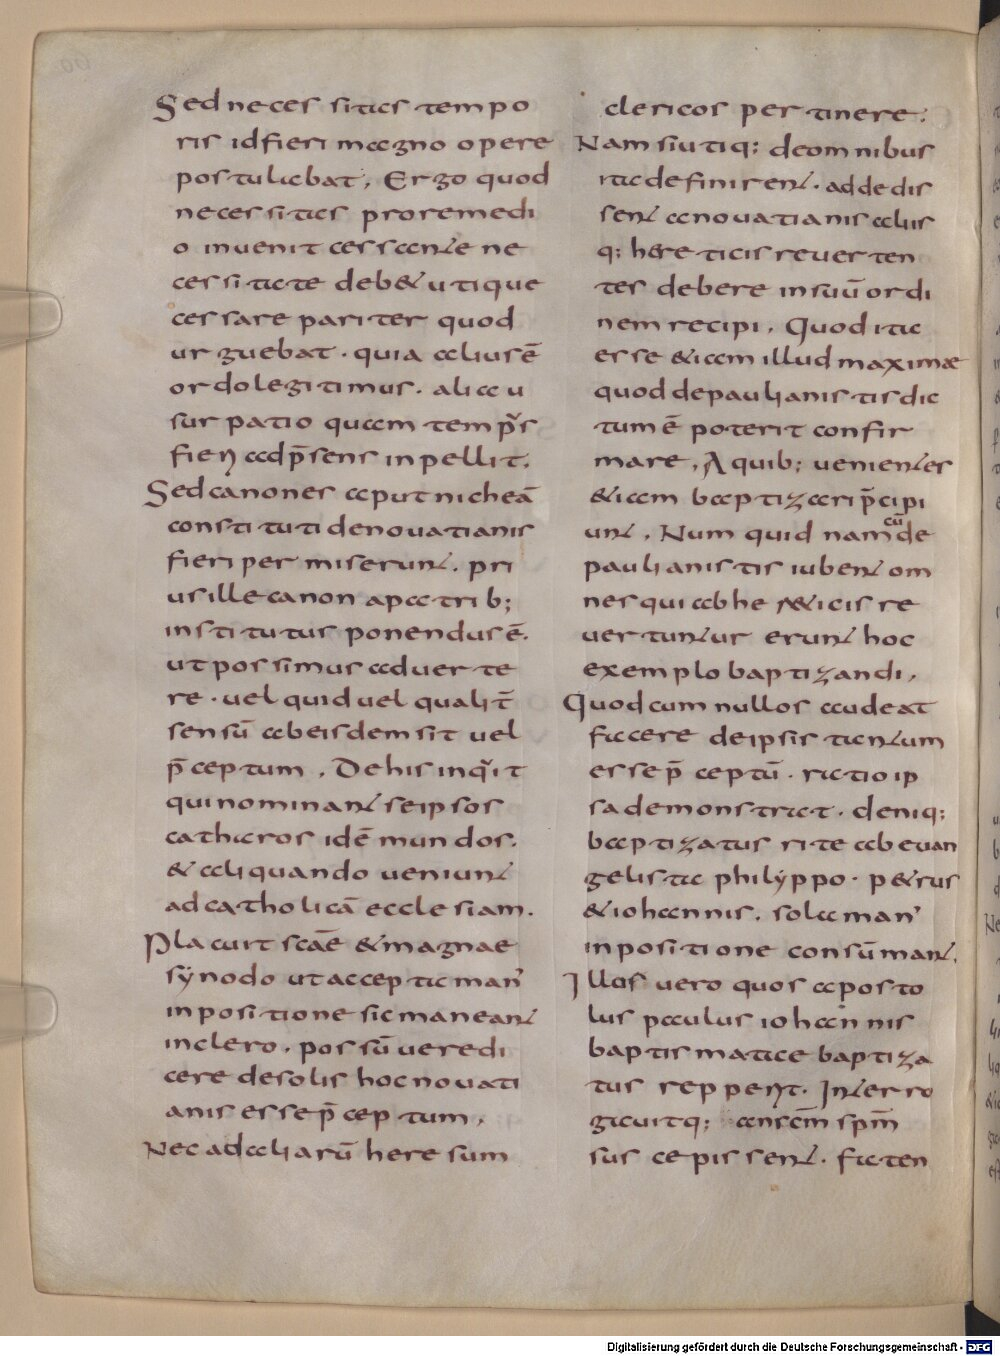 Sed necessitas tempo
ris id fieri magno opere
postulabat, Ergo quod
necessitas pro remedi
o invenit cessante ne
cessitate debet utique
cessare pariter quod
urguebat. quia alius ē
ordo legitimus. alia u
surpatio quam temp̄s
fieri ad p̄sens inpellit.
Sed canones aput nicheā
constituti de novatianis
fieri permiserunt. pri
us ille canon a patrib;
institutus ponendus ē.
ut possimus adverte
re. vel quid vel qualit̄
sensū ab eisdem sit vel
p̄ceptum, De his inq̇it
qui nominant se ipsos
catharos idē mundos.
& aliquando veniunt
ad catholicā ecclesiam.
Placuit scāe & magnae
sẏnodo ut accepta man'
inpositione sic maneant
in clero. possū vere di
cere de solis hoc novati
anis esse p̄ceptum,
Nec ad aliarū heresum
clericos pertinere;
Nam si utiq; de omnibus
ita definirent. addedis
sent a novatianis aliis
q; hereticis reverten
tes debere in suū ordi
nem recipi, Quod ita
esse etiam illud maximæ
quod de paulianistis dic
tum ē poterit confir
mare, A quib; venientes
etiam baptizari p̄cipi
unt, Num quid nam cū de
paulianistis iubent om
nes qui ab he reticis re
vertuntur erunt hoc
exemplo baptizandi,
Quod cum nullos audeat
facere de ipsis tantum
esse p̄ceptū. ratio ip
sa demonstrat. deniq;
baptizatus rite ab evan
gelista philẏppo. petrus
& iohannis. sola man'
inpositione consūmant.
Illos vero quos aposto
lus paulus iohannis
baptismatae baptiza
tus repperit. Interro
gavitq; an scm̄ spm̄
sus cepissent. faten
Digitalisierung gefördert durch die Deutsche Forschungsgemeinschaft - DFG